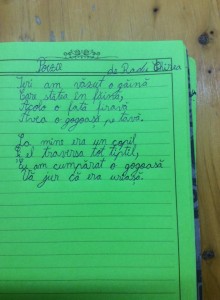 Poezie
de Radu
Ieri am văzut o găină
Care stătea în făină,
Acolo o fată firavă
Avea o gogoașă pe tavă.
La mine era un copil,
El traversa tot tiptil,
Eu am cumpărat o gogoașă
Vă jur că era uriașă.